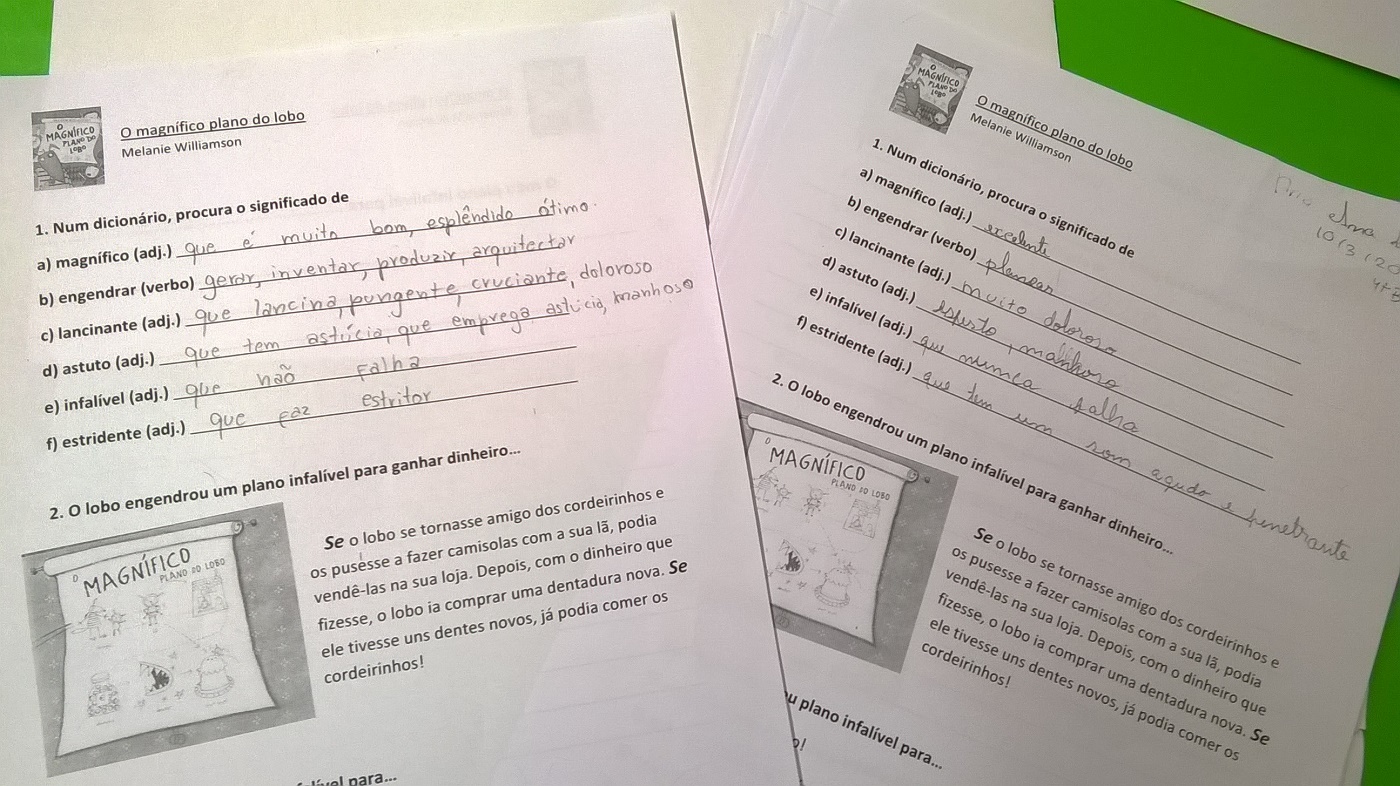 O MAGNÍFICO PLANO DO LOBO
O magnífico plano do lobo
Melanie Williamson
1. Num dicionário, procura o significado de
a) magnífico (adj.) que é muito bom, esplêndido ótimo.
b) engendrar (verbo) gerar, inventar, produzir, arquitectar
c) lancinante (adj.) que lancina, pungente, cruciante, doloroso
d) astuto (adj.) que tem astúcia, que emprega astúcia, manhoso
e) infalível (adj.) que não falha
f) estridente (adj.) que faz estritor
2. O lobo engendrou um plano infalível para ganhar dinheiro...
O MAGNÍFICO
PLANO DO LOBO
Se o lobo se tornasse amigo dos cordeirinhos e
os pusesse a fazer camisolas com a sua lã, podia
vendê-las na sua loja. Depois, com o dinheiro que
fizesse, o lobo ia comprar uma dentadura nova. Se
ele tivesse uns dentes novos, já podia comer os
cordeirinhos!
para...
O MAGNÍFICO PLANO DO LOBO
O magnífico plano do lobo
Melanie Williamson
10/3/20
1. Num dicionário, procura o significado de
a) magnífico (adj.) excelente
b) engendrar (verbo) planear
c) lancinante (adj.) muito doloroso
d) astuto (adj.) esperto, manhoso
e) infalível (adj.) que nunca falha
f) estridente (adj.) que tem um som agudo e penetrante
2. O lobo engendrou um plano infalível para ganhar dinheiro...
O MAGNÍFICO
PLANO DO LOBO
Se o lobo se tornasse amigo dos cordeirinhos e
os pusesse a fazer camisolas com a sua lã, podia
vendê-las na sua loja. Depois, com o dinheiro que
fizesse, o lobo ia comprar uma dentadura nova. Se
ele tivesse uns dentes novos, já podia comer os
cordeirinhos!
u plano infalível para...
o!